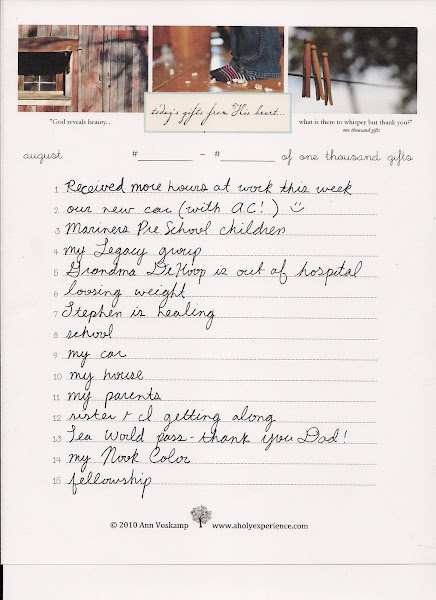 today's gifts from His heart...
"God reveals beauty...
what is there to whisper but thank you?"
one thousand gifts
august #________ - #________ of one thousand gifts
1 Received more hours at work this week
2 our new car (with A.C!) :)
3 Mariners Pre School children
4 my Legacy group
5 Grandma DeHoop is out of hospital
6 loosing weight
7 Stephen is healing
8 school
9 my car
10 my house
11 my parents
12 sister + I getting along
13 Sea World pass - thank you Dad!
14 my Nook Color
15 fellowship
© 2010 Ann Voskamp www.aholyexperience.com